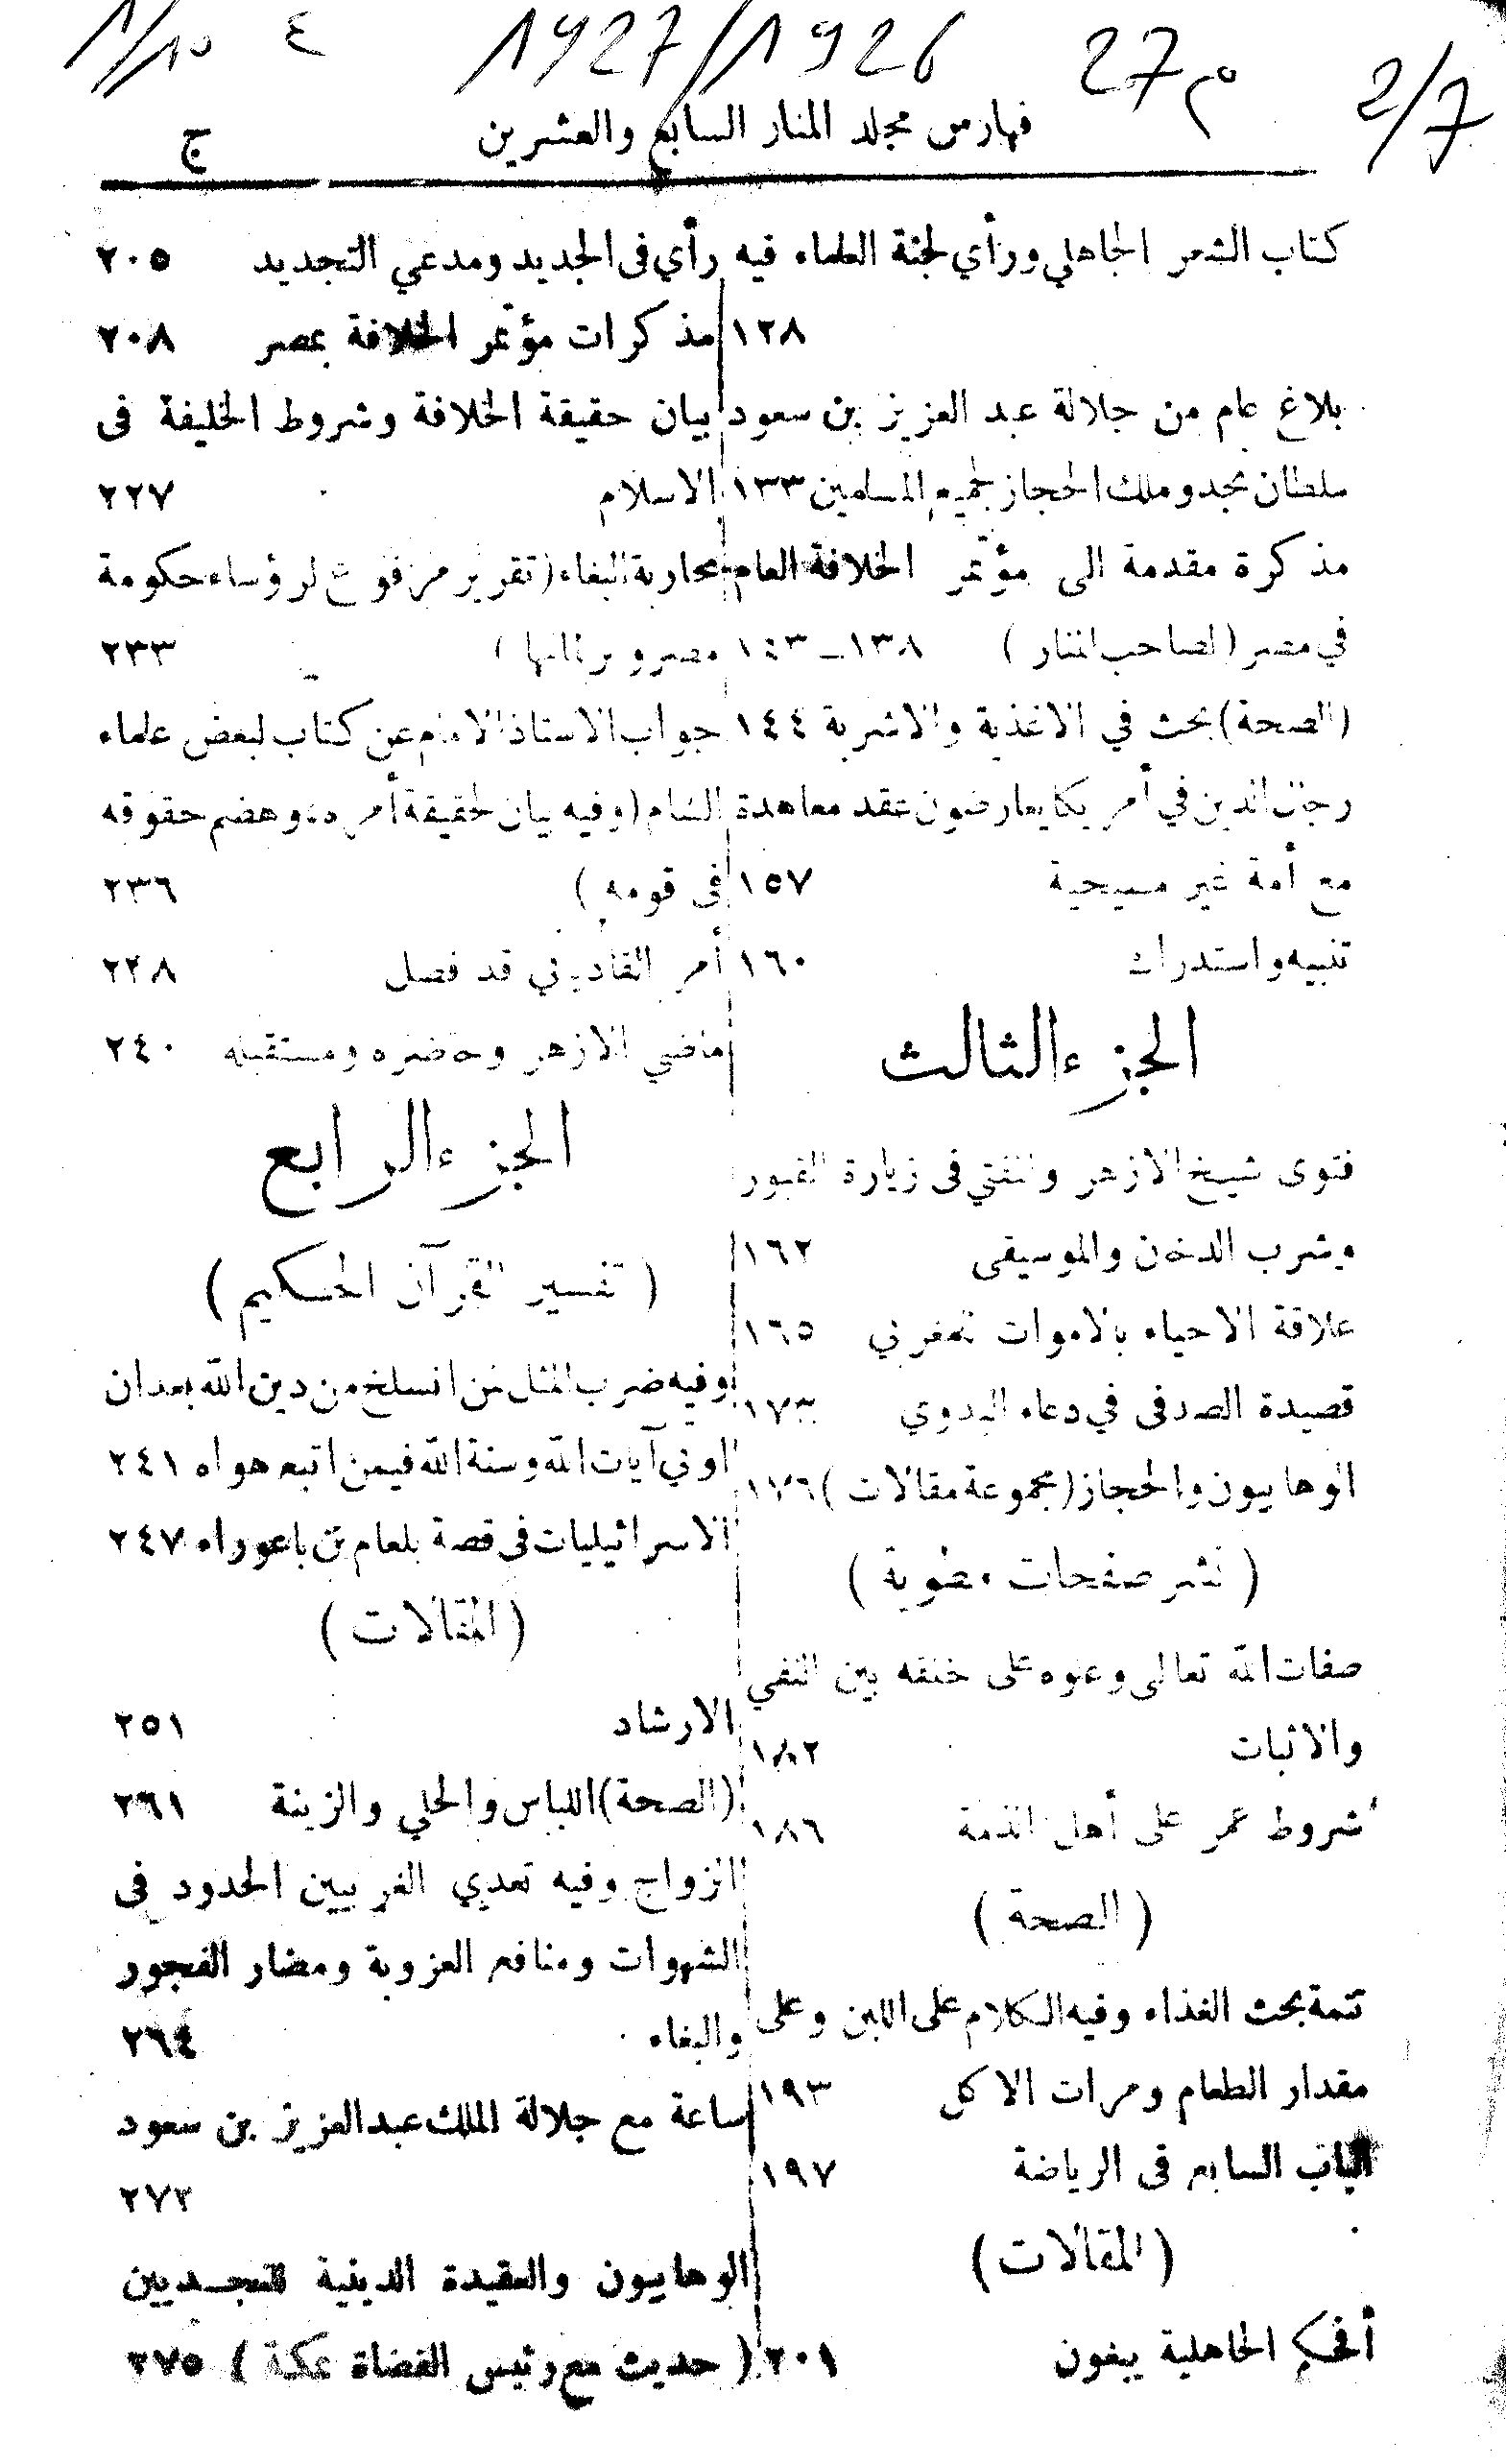 2/7
م 27
1927/1926
٤
١/١٥
فهارس مجلد المنار السابع والعشرين
ج
كتاب الشعر الجاهلي ورأي لجنة العلماء فيه
١٢٨
بلاغ عام من جلالة عبد العزيز بن سعود
سلطان نجد وملك الحجاز لجميع المسلمين ١٣٣
مذكرة مقدمة الى مؤتمر الخلافة العام
في مصر (لصاحب المنار) ١٣٨ــ١٤٣
(الصحة) بحث في الاغذية والاشربة ١٤٤
رجال الدين في أمريكا يعارضون عقد معاهدة
مع أمة غير مسيحية ١٥٧
تنبيه واستدراك ١٦٠
الجزء الثالث
فتوى شيخ الازهر والمفتي في زيارة القبور
وشرب الدخن والموسيقى ١٦٢
علاقة الاحياء بالاموات للمغربي ١٦٥
قصيدة الصدفى في دعاء البدوي ١٧٣
الوهابيون والحجاز (مجموعة مقالات) ١٧٦
( نشر صفحات مطوية )
صفات الله تعالى وعلوه على خلقه بين النفي
والاثبات ١٨٢
شروط عمر على أهل الذمة ١٨٦
( الصحة )
تتمة بحث الغذاء وفيه الكلام على اللبن وعلى
مقدار الطعام ومرات الاكل ١٩٣
الباب السابع في الرياضة ١٩٧
( المقالات )
أفحكم الجاهلية يبغون ٢٠١
رأي في الجديد ومدعي التجديد ٢٠٥
مذكرات مؤتمر الخلافة بمصر ٢٠٨
بيان حقيقة الخلافة وشروط الخليفة في
الاسلام ٢٢٧
محاربة البغاء (تقرير مرفوع لرؤساء حكومة
مصر وبرلمانها ) ٢٣٣
جواب الاستاذ الامام عن كتاب لبعض علماء
الشام (وفيه بيان لحقيقة أمره وهضم حقوقه
في قومه ) ٢٣٦
أمر القادياني قد فصل ٢٣٨
ماضي الازهر وحاضره ومستقبله ٢٤٠
الجزء الرابع
( تفسير القرآن الحكيم )
وفيه ضرب المثل لمن انسلخ من دين الله بعد ان
اوتي آيات الله وسنة الله فيمن اتبع هواه ٢٤١
الاسرائيليات في قصة بلعام بن باعوراء ٢٤٧
( المقالات )
الارشاد ٢٥١
(الصحة) اللباس والحلي والزينة ٢٦١
الزواج وفيه تعدي الغربيين الحدود في
الشهوات ومنافع العزوبة ومضار الفجور
والبغاء ٢٦٤
ساعة مع جلالة الملك عبد العزيز بن سعود
٢٧٢
الوهابيون والعقيدة الدينية للنجديين
( حديث مع رئيس القضاة بمكة ) ٢٧٥